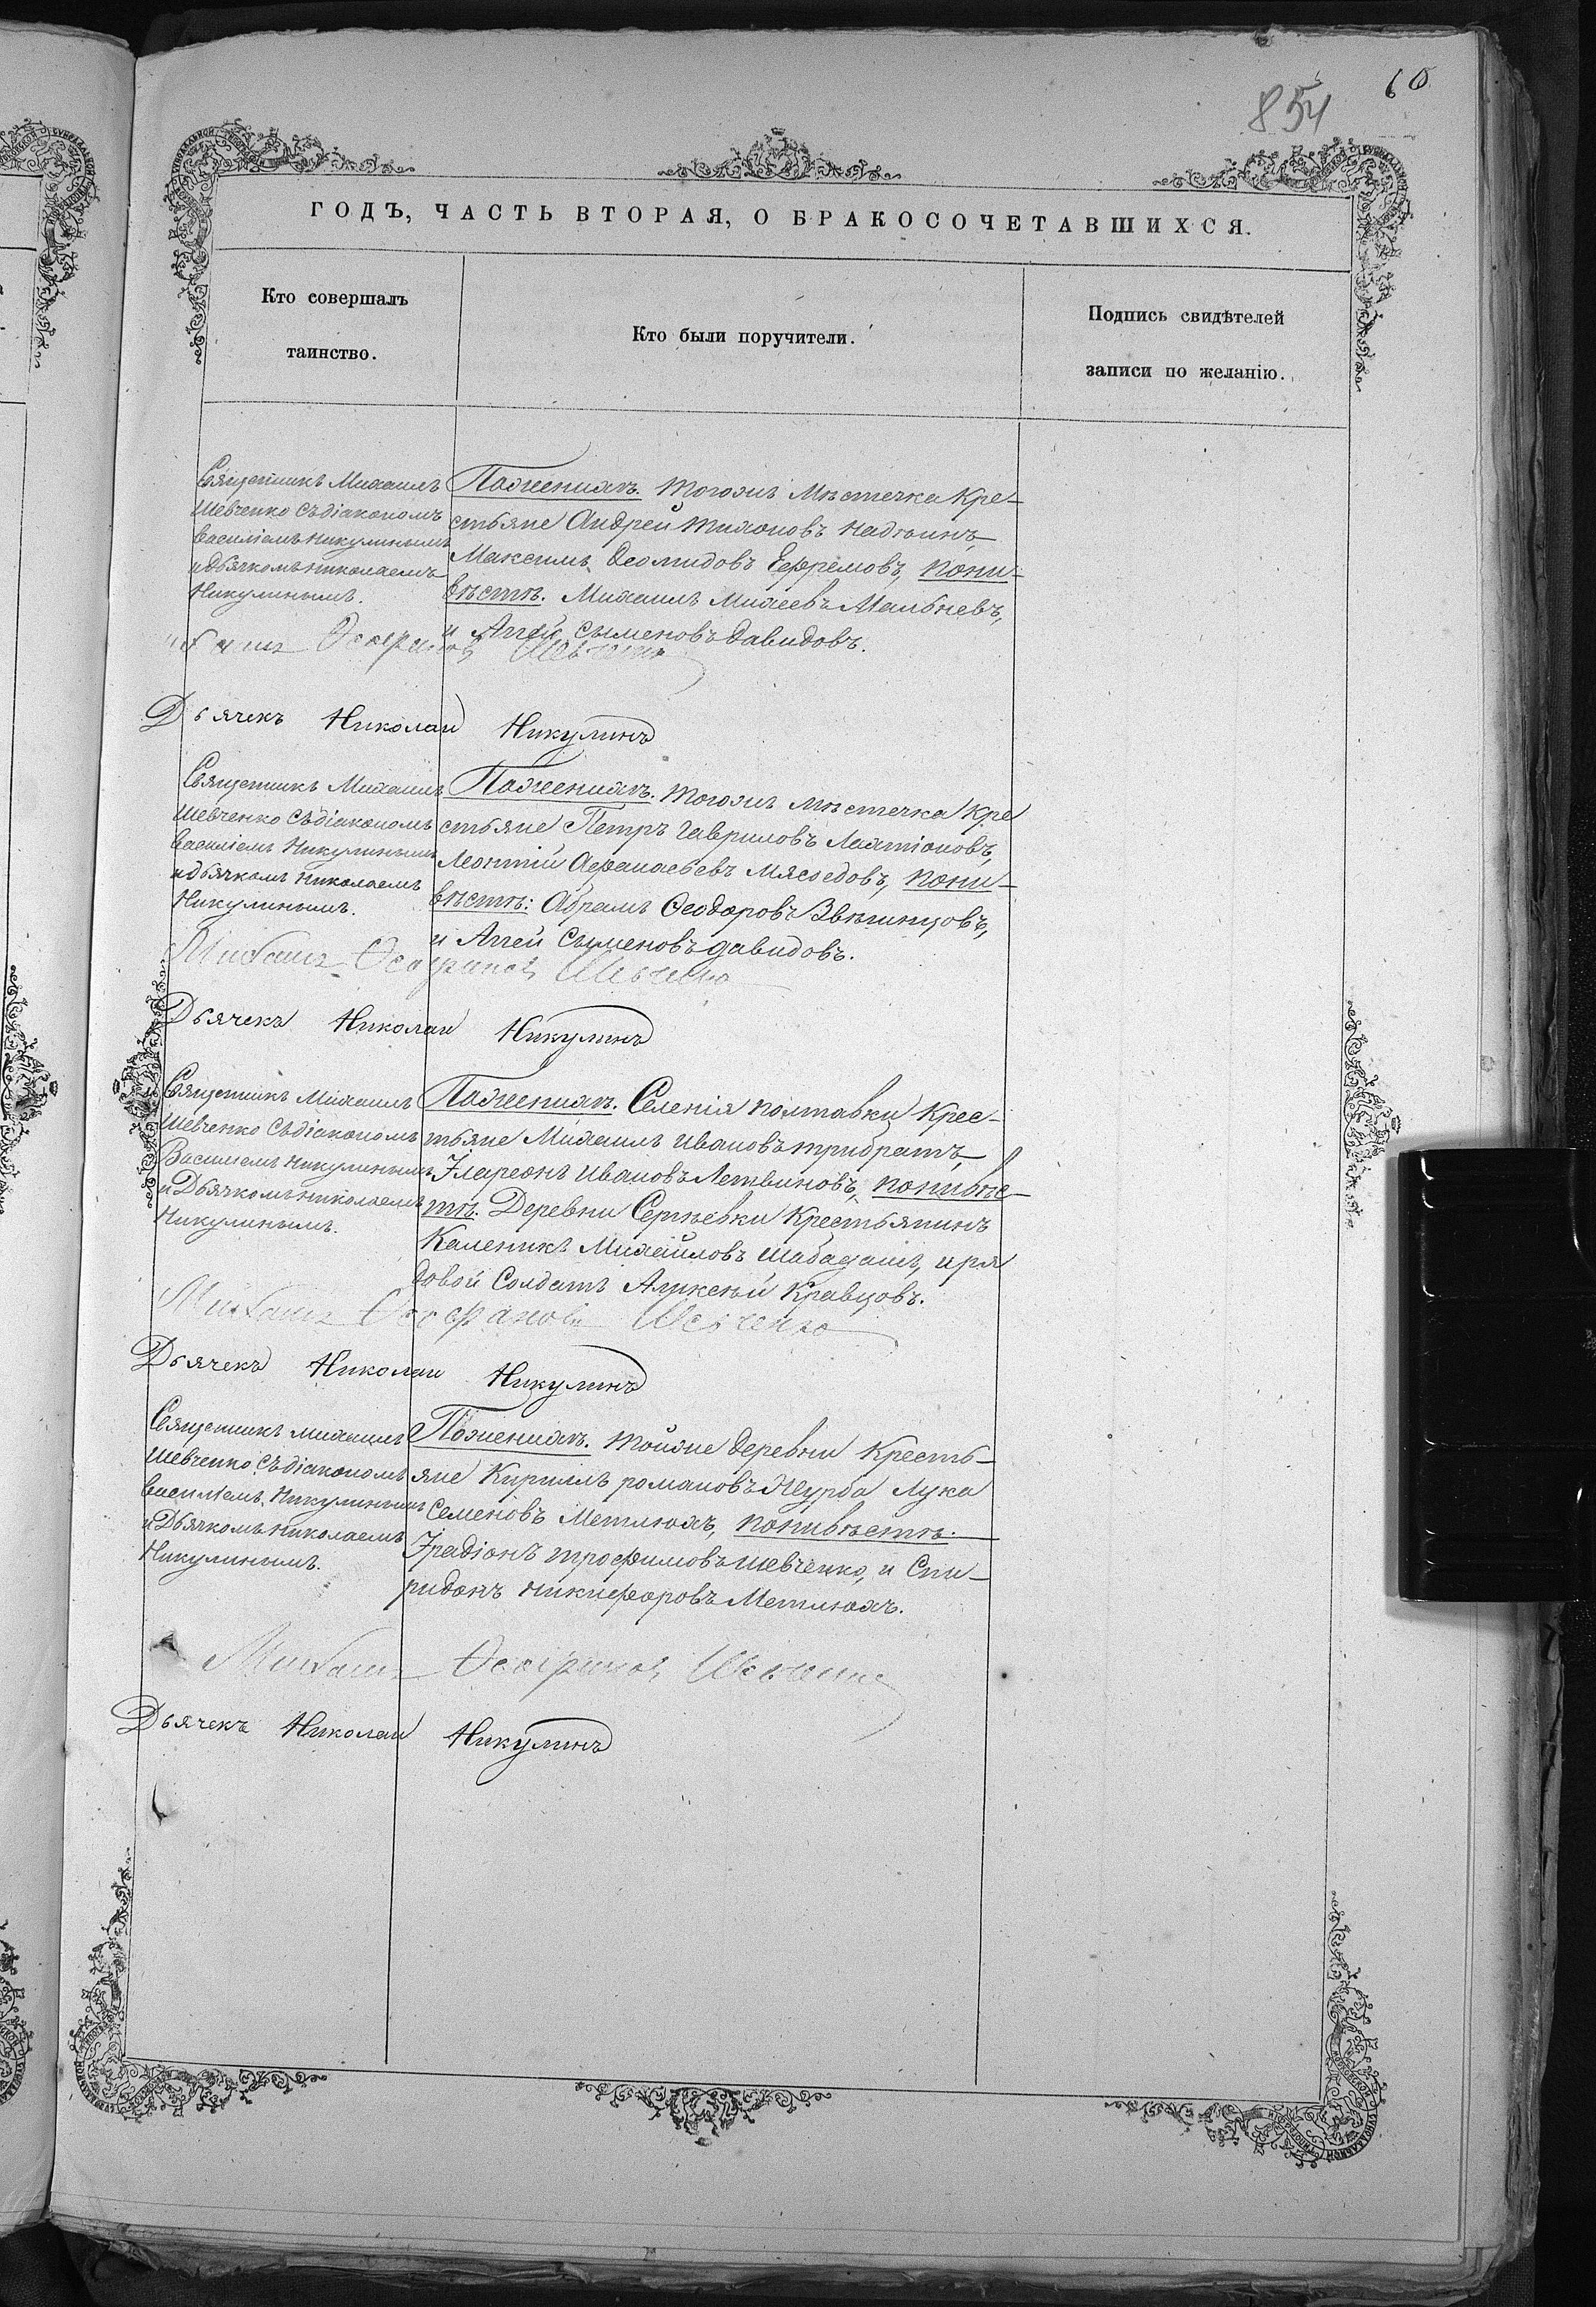 60
854
ГОДЪ, ЧАСТЬ ВТОРАЯ, О БРАКОСОЧЕТАВШИХСЯ.
Кто совершалъ
таинство.
Кто были поручители.
Подпись свидѣтелей
записи по желанію.
Священникъ Михаилъ
Шевченко съдіакономъ
василіемъ никулинымъ
идьячкомъ николаемъ
Никулинымъ.
Поженихъ. тогожъ мѣстечка Кре-
стьяне Андрей тихоновъ
Максимъ Деомидовъ Ефремовъ, Попи-
вѣстѣ. Михаилъ Михеевъ
и Аггей сыменовъ Давидовъ.
Дьячекъ Николаи Никулинъ
Священникъ Михаилъ
Шевченко Съдіакономъ
василіемъ Никулинымъ
идьячкомъ николаемъ
Никулинымъ.
Поженихъ. тогожъ мѣстечка Кре
стьяне Петръ гавриловъ
Леонтій Афанасьевъ Мясоедовъ, Попи-
вѣстѣ: Абрамъ Феодоровъ Звѣгинцовъ,
и Аггей Сыменовъ давидовъ.
Михаилъ Шевченко
Дьячекъ Николаи Никулинъ
Священникъ Михаилъ
Шевченко Съдіакономъ
Василіемъ никулинымъ
и Дьячкомъ николаемъ
Никулинымъ.
Поженихъ. Селенія полтавки Крес-
тьяне Михаилъ ивановъ трибратъ,
Ілареонъ ивановъ Летвиновъ, попивѣс-
тѣ. Деревни Сергѣевки Крестьянинъ
Каленикъ Михайловъ шабадашъ, и ря
довой Солдатъ Алуксѣй Кравцовъ.
Михаилъ Феофановъ Шевченко
Дьячекъ Николаи Никулинъ
Священникъ михаилъ
Шевченко Съдіакономъ
василіемъ Никулинымъ
и Дьячкомъ николаемъ
Никулинымъ.
Поженихъ. тойже деревни Кресть-
яне Кирилъ романовъ Журба Лука
Семеновъ Метлюхъ, попивѣстѣ.
Ірадіонъ трофимовъ шевченко, и Спи-
ридонъ никифоровъ Метлюхъ.
Михаилъ Шевченко
Дьячекъ Николаи Никулинъ